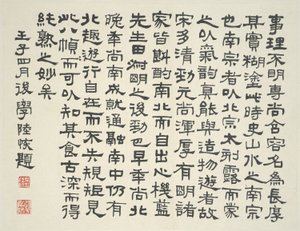 事理不明專尚含容名為長厚
其實糊塗此時史山水之南宗
也南宗者以北宗太刻露而蒙
之以氣韵真能與造物遊者故
宋多清勁元尚渾厚有明諸
家皆斟酌南北而自出心機藍
先生田叔明之後勁也早季尚北
晚季尚南成就通融南中仍有
北趣遊行自在而不失規矩見
此八幀而可以知其食古深而得
純熟之妙矣
壬子四月後學陸恢題